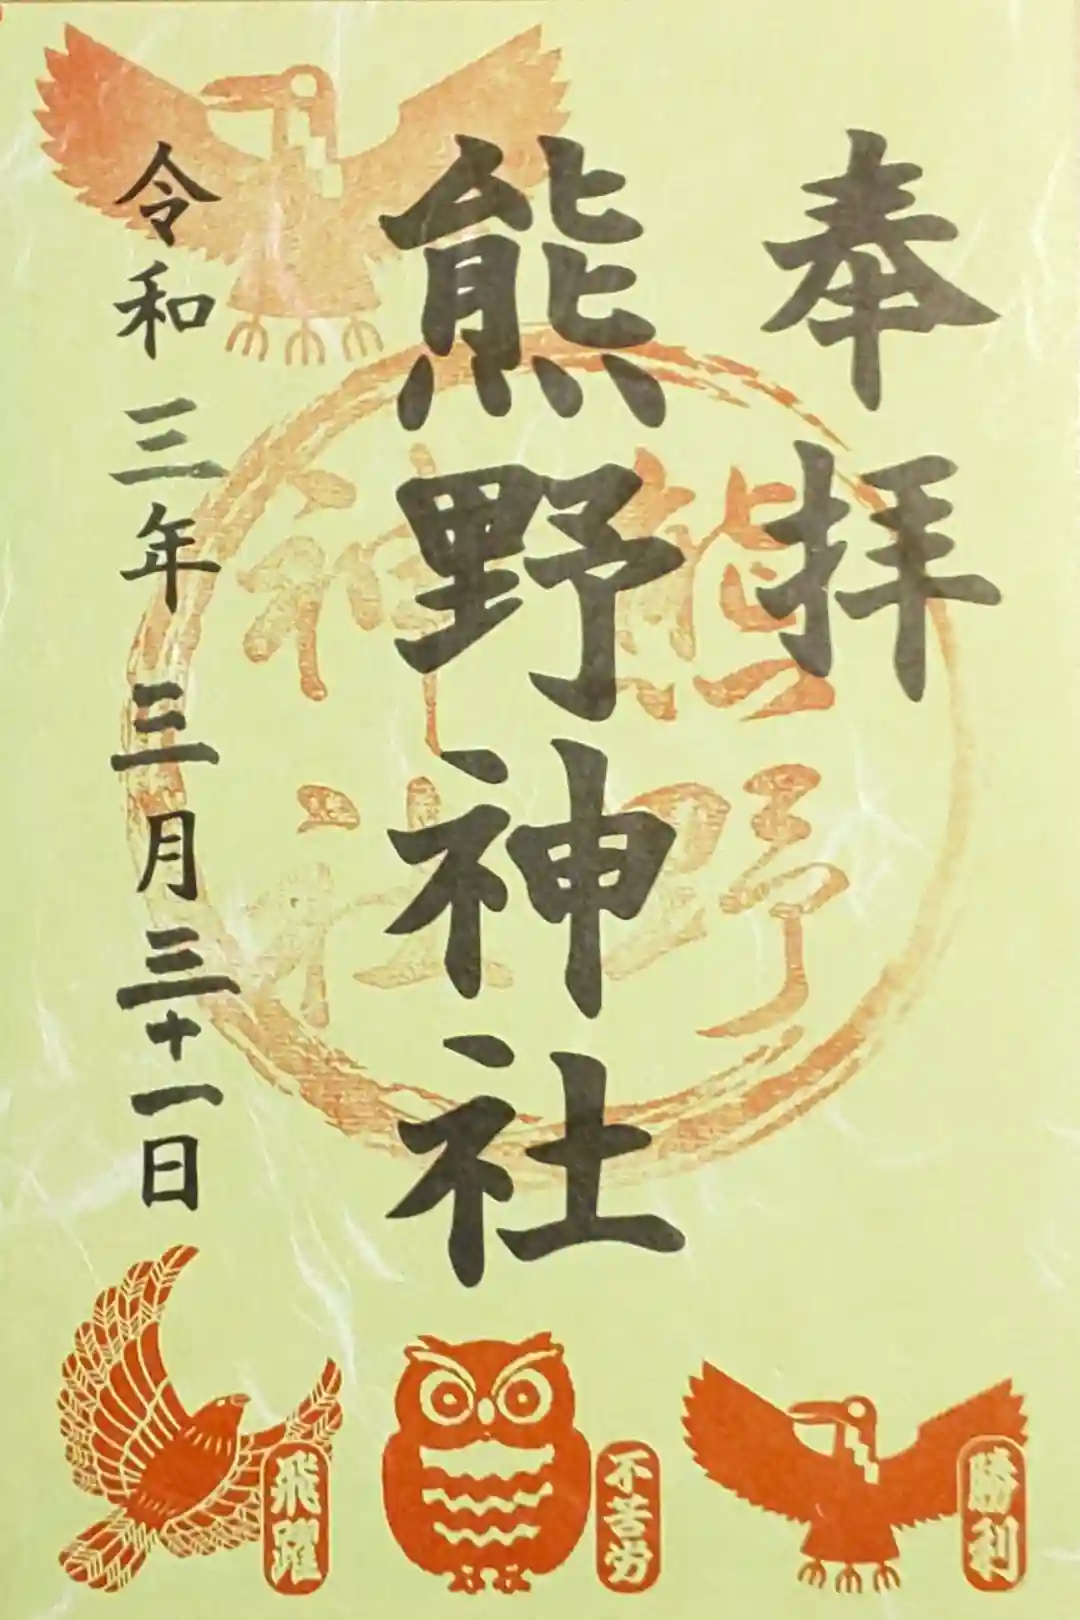 奉拝
熊野神社
令和三年三月三十一日
熊野
神社
勝利
不苦労
飛躍